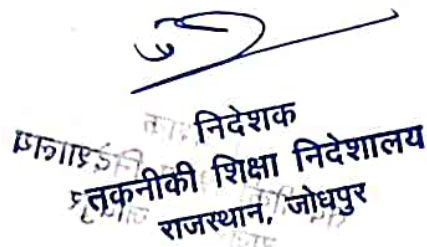 निदेशक
तकनीकी शिक्षा निदेशालय
राजस्थान, जोधपुर